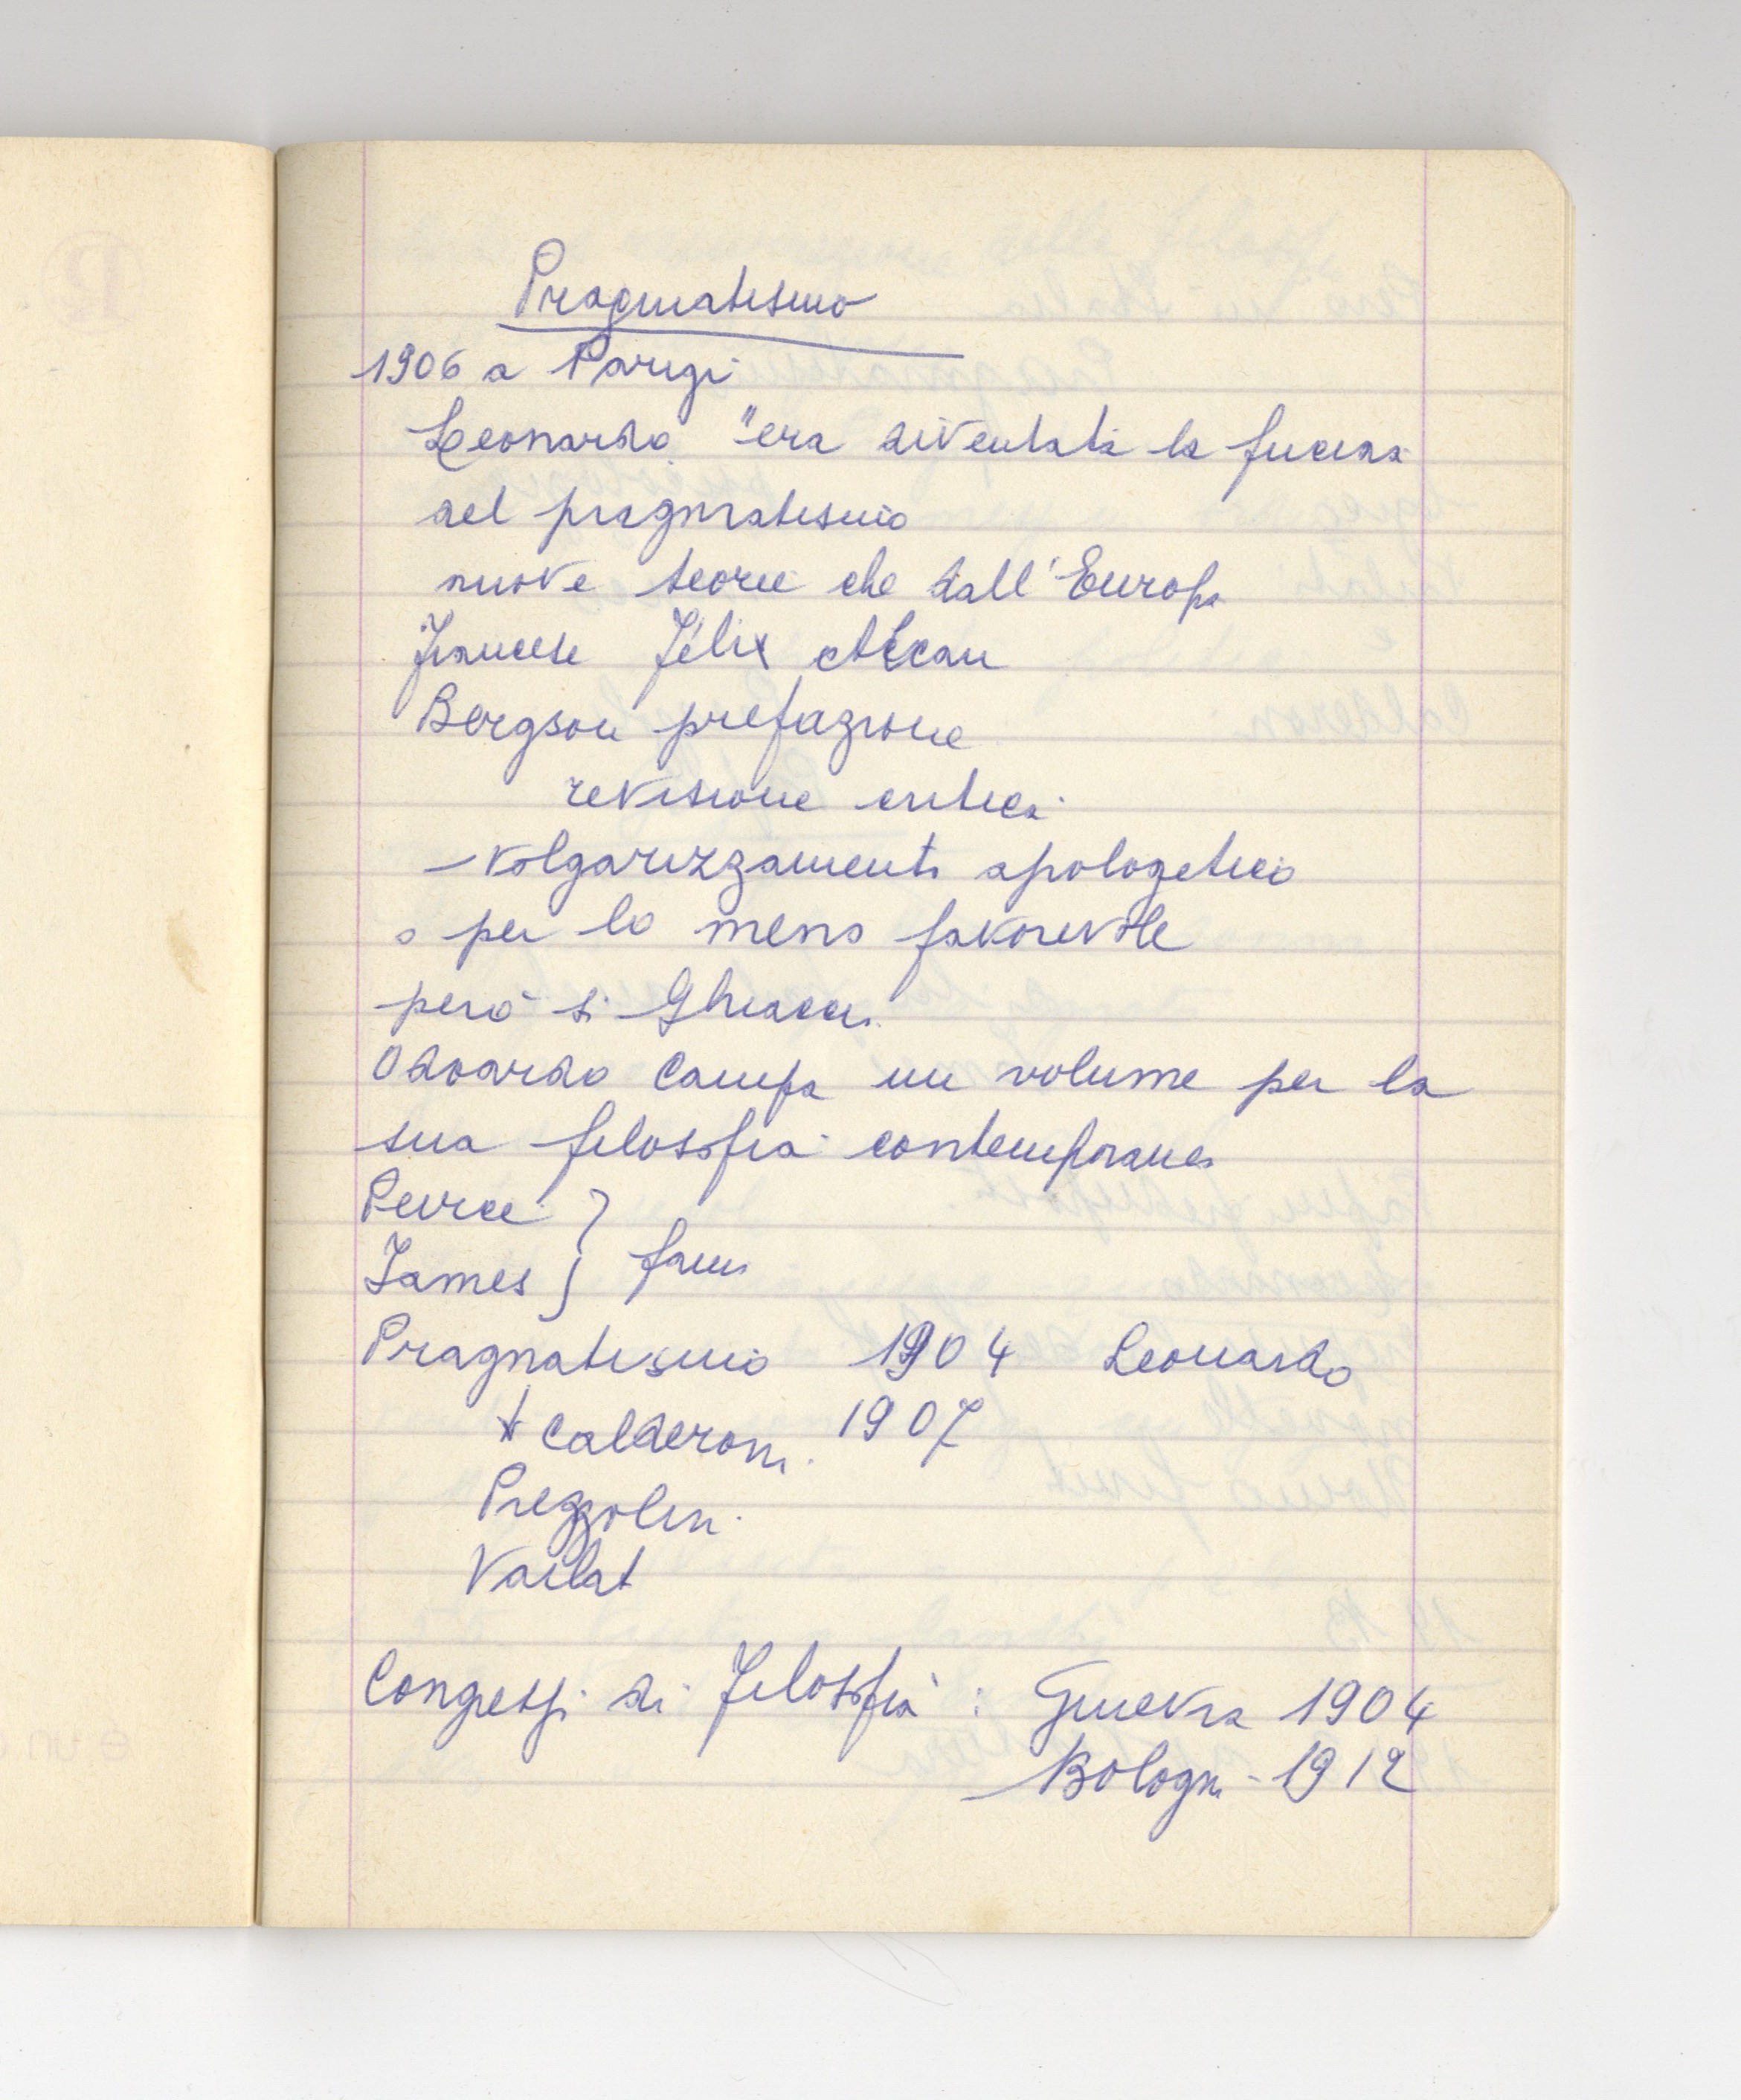 Pragmatismo
1906 a Parigi
Leonardo "era diventata la fucina
del pragmatismo
nuove teorie che dall'Europa
francese Félix Alcan
Bergson prefazione
revisione critica
volgarizzamento apologetico
o per lo meno favorevole
però si ghiacciò
Odoardo Campa un volume per la
sua filosofia contemporanea
Peirce }
James } fami
Pragmatismo 1904 Leonardo
Calderoni 1907
Prezzolini
Vailati
Congressi di Filosofia : Ginevra 1904
Bologna - 1912